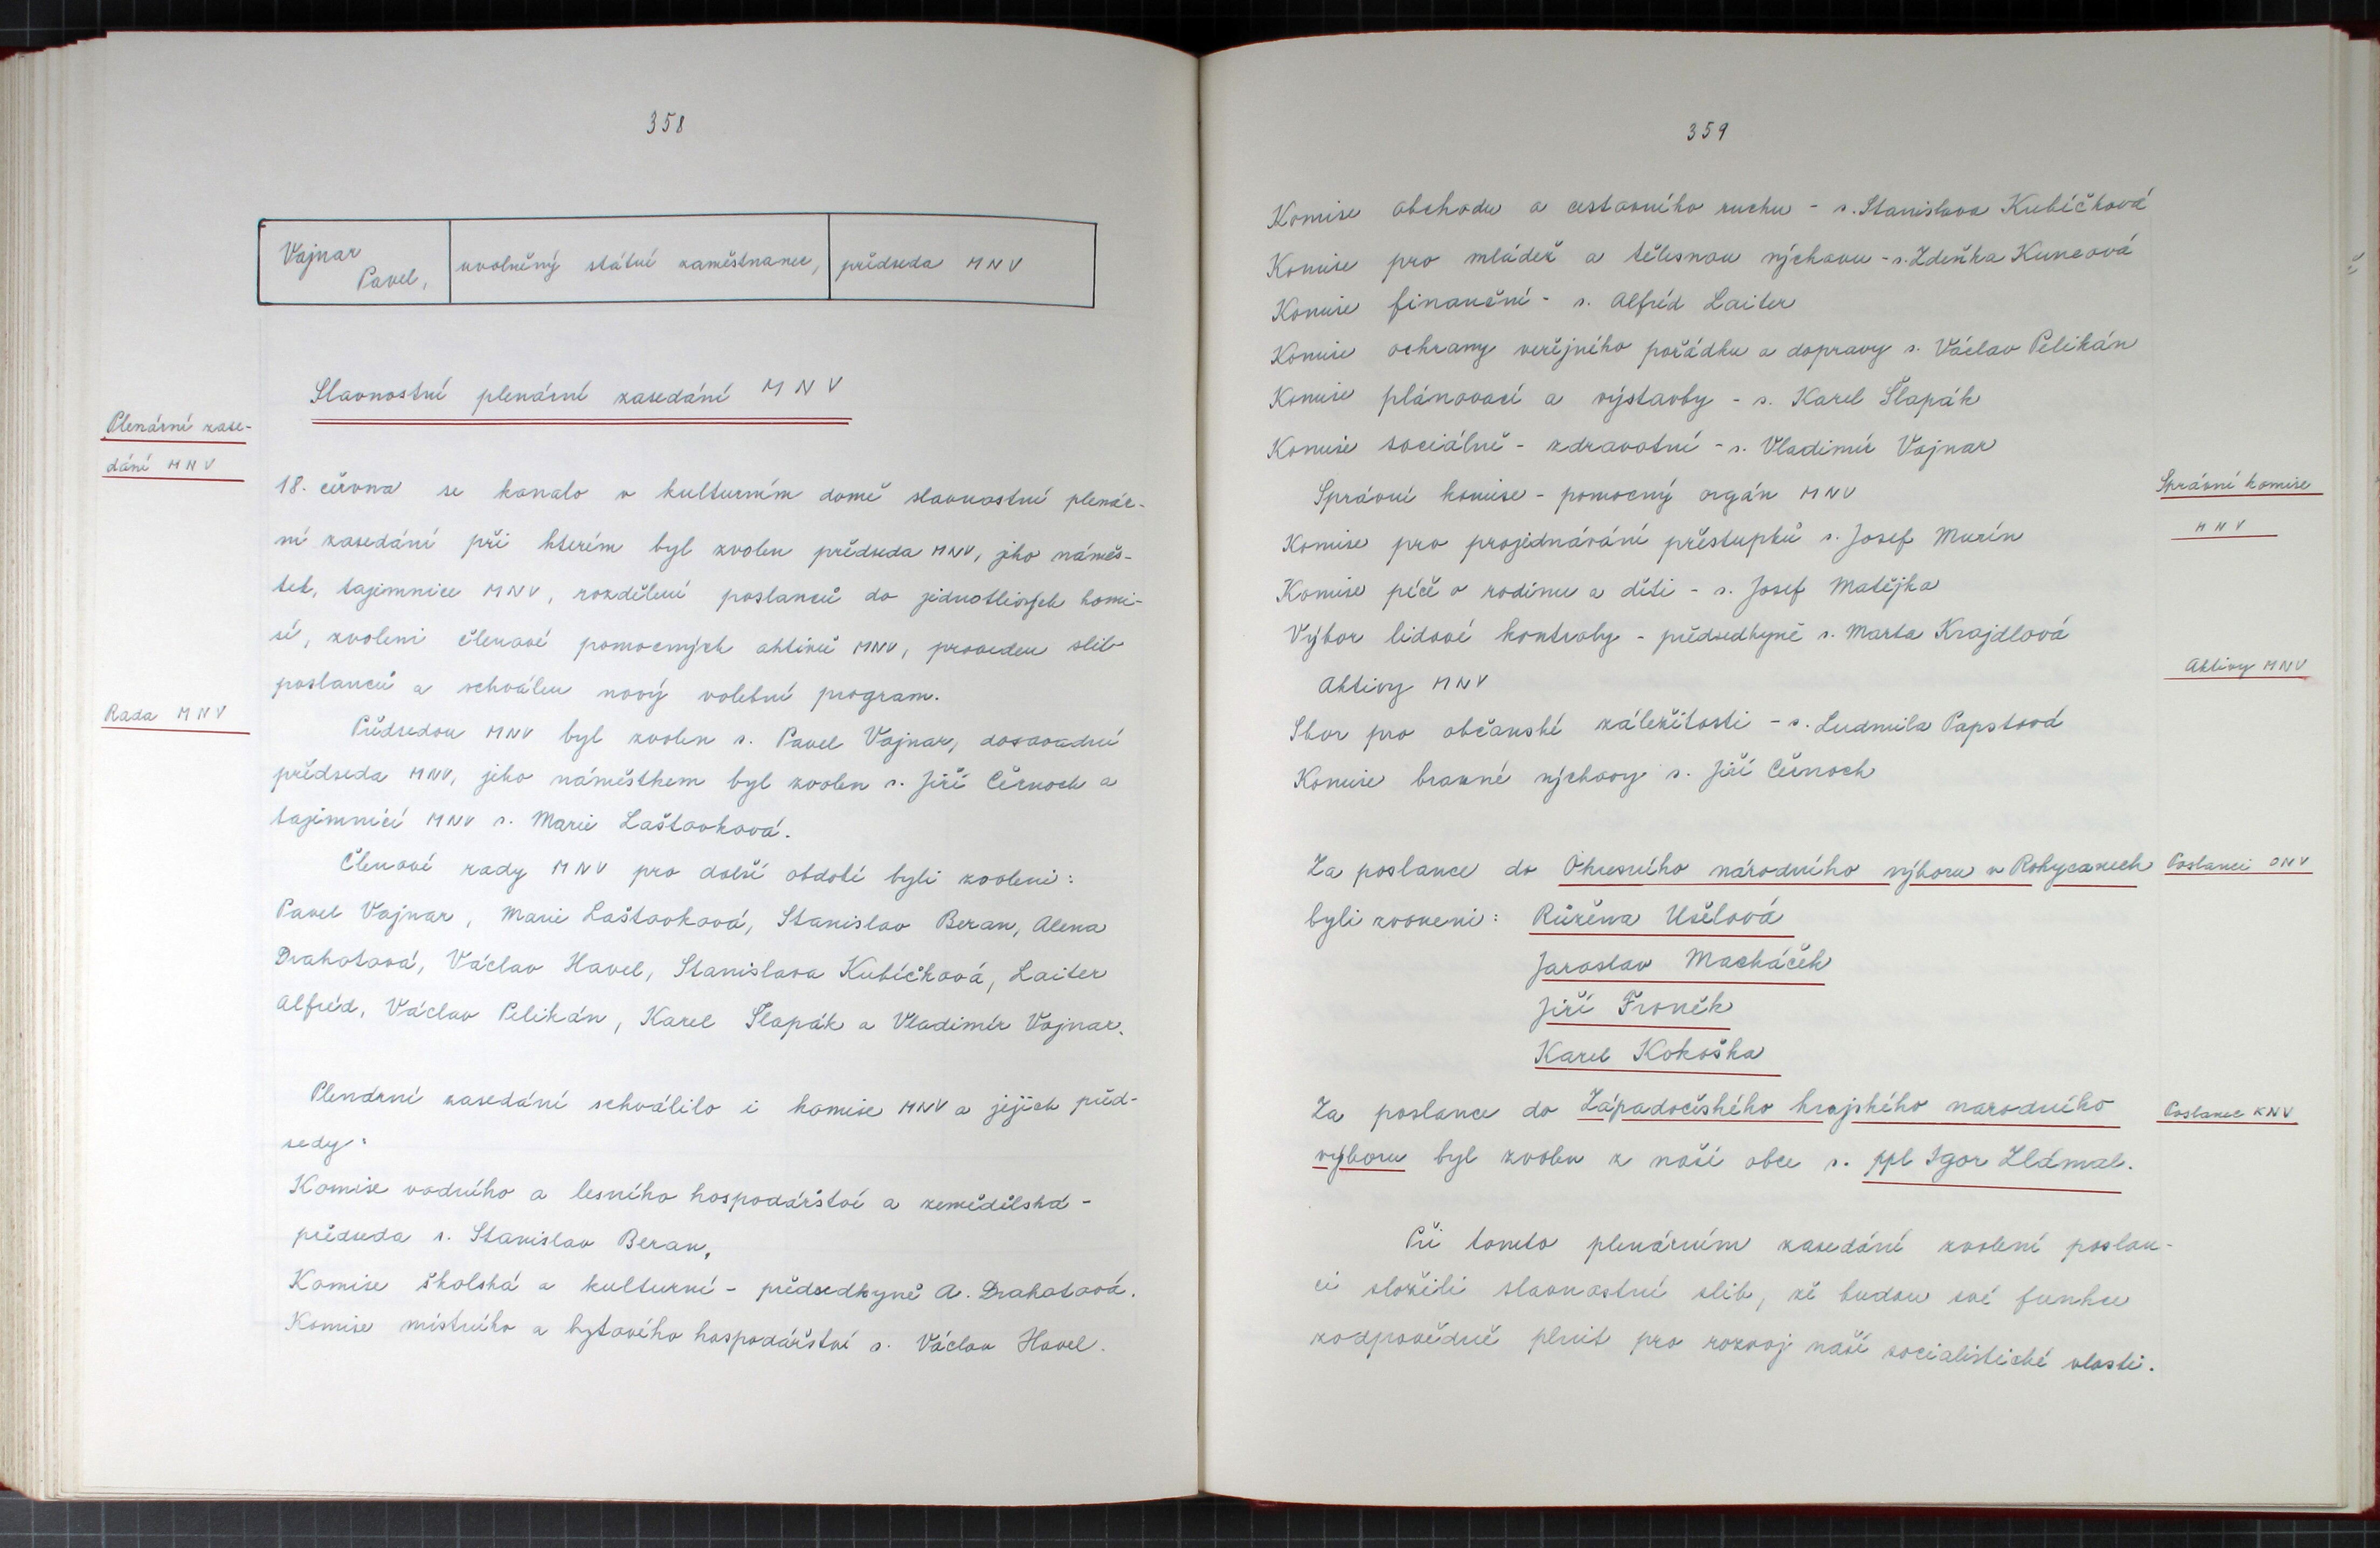 358
Vajnar
Pavel,
uvolněný státní zaměstnanec,
předseda MNV
Slavnostní plenární zasedání MNV
Plenární zase-
dání MNV
18. června se konalo v kulturním domě slavnostní plenár-
ní zasedání při kterém byl zvolen předseda MNV, jeho náměs-
tek, tajemnice MNV, rozdělení poslanců do jednotlivých komi-
sí, zvoleni členové pomocných aktivů MNV, proveden slib
poslanců a schválen nový volební program.
Rada MNV
Předsedou MNV byl zvolen s. Pavel Vajnar, dosavadní
předseda MNV, jeho náměstkem byl zvolen s. Jiří Černoch a
tajemnicí MNV s. Marie Laštovková.
Členové rady MNV pro další období byli zvoleni:
Pavel Vajnar, Marie Laštovková, Stanislav Beran, Alena
Drahotová, Václav Havel, Stanislava Kubíčková, Laiter
Alfréd, Václav Pelikán, Karel Šlapák a Vladimír Vajnar.
Plenární zasedání schválilo i komise MNV a jejich před-
sedy:
Komise vodního a lesního hospodářství a zemědělská -
předseda s. Stanislav Beran,
Komise školská a kulturní - předsedkyně A. Drahotová.
Komise místního a bytového hospodářství s. Václav Havel.
359
Komise obchodu a cestovního ruchu - s. Stanislava Kubíčková
Komise pro mládež a tělesnou výchovu - s. Zdeňka Kuncová
Komise finanční - s. Alfréd Laiter
Komise ochrany veřejného pořádku a dopravy s. Václav Pelikán
Komise plánovací a výstavby - s. Karel Šlapák
Komise sociálně - zdravotní - s. Vladimír Vajnar
Správní komise - pomocný orgán MNV
Správní komise
MNV
Komise pro projednávání přestupků s. Josef Murín
Komise péče o rodinu a děti - s. Josef Matějka
Výbor lidové kontroly - předsedkyně s. Marta Krajdlová
Aktivy MNV
Aktivy MNV
Sbor pro občanské záležitosti - s. Ludmila Papstová
Komise branné výchovy s. Jiří Černoch
Za poslance do Okresního národního výboru v Rokycanech
Poslanci ONV
byli zvoleni: Růžena Ušelová
Jaroslav Macháček
Jiří Froněk
Karel Kokoška
Za poslance do Západočeského krajského narodního
Poslanec KNV
výboru byl zvolen z naší obce s. ppl Igor Zlámal.
Při tomto plenárním zasedání zvolení poslan-
ci složili slavnostní slib, že budou své funkce
zodpovědně plnit pro rozvoj naší socialistické vlasti.